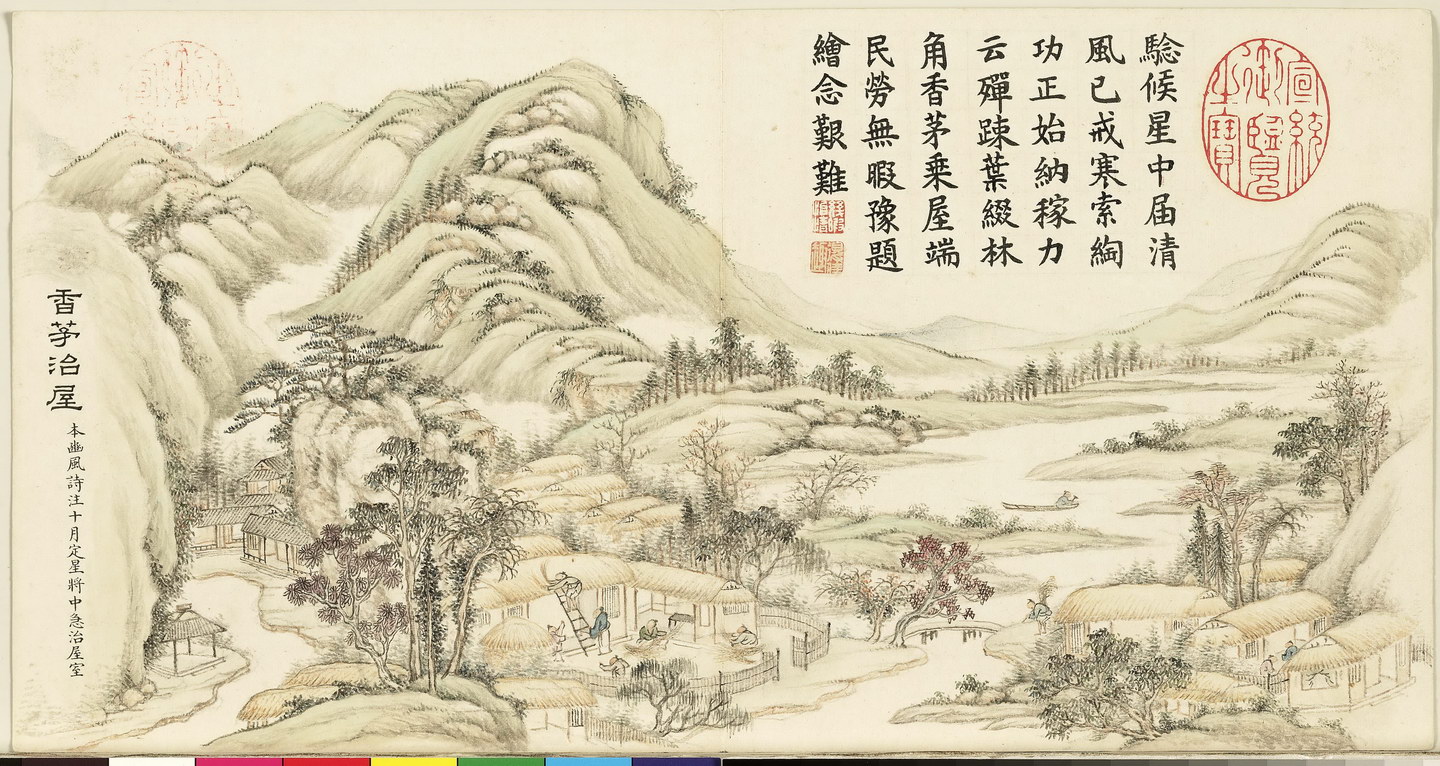 宣統御覽之寶
騐候星中届清
風已戒寒索綯
功正始納稼力
云殫踈葉綴林
角香茅乗屋端
民勞無暇豫題
繪念艱難
香茅治屋
本豳風詩注十月定星將中急治屋室